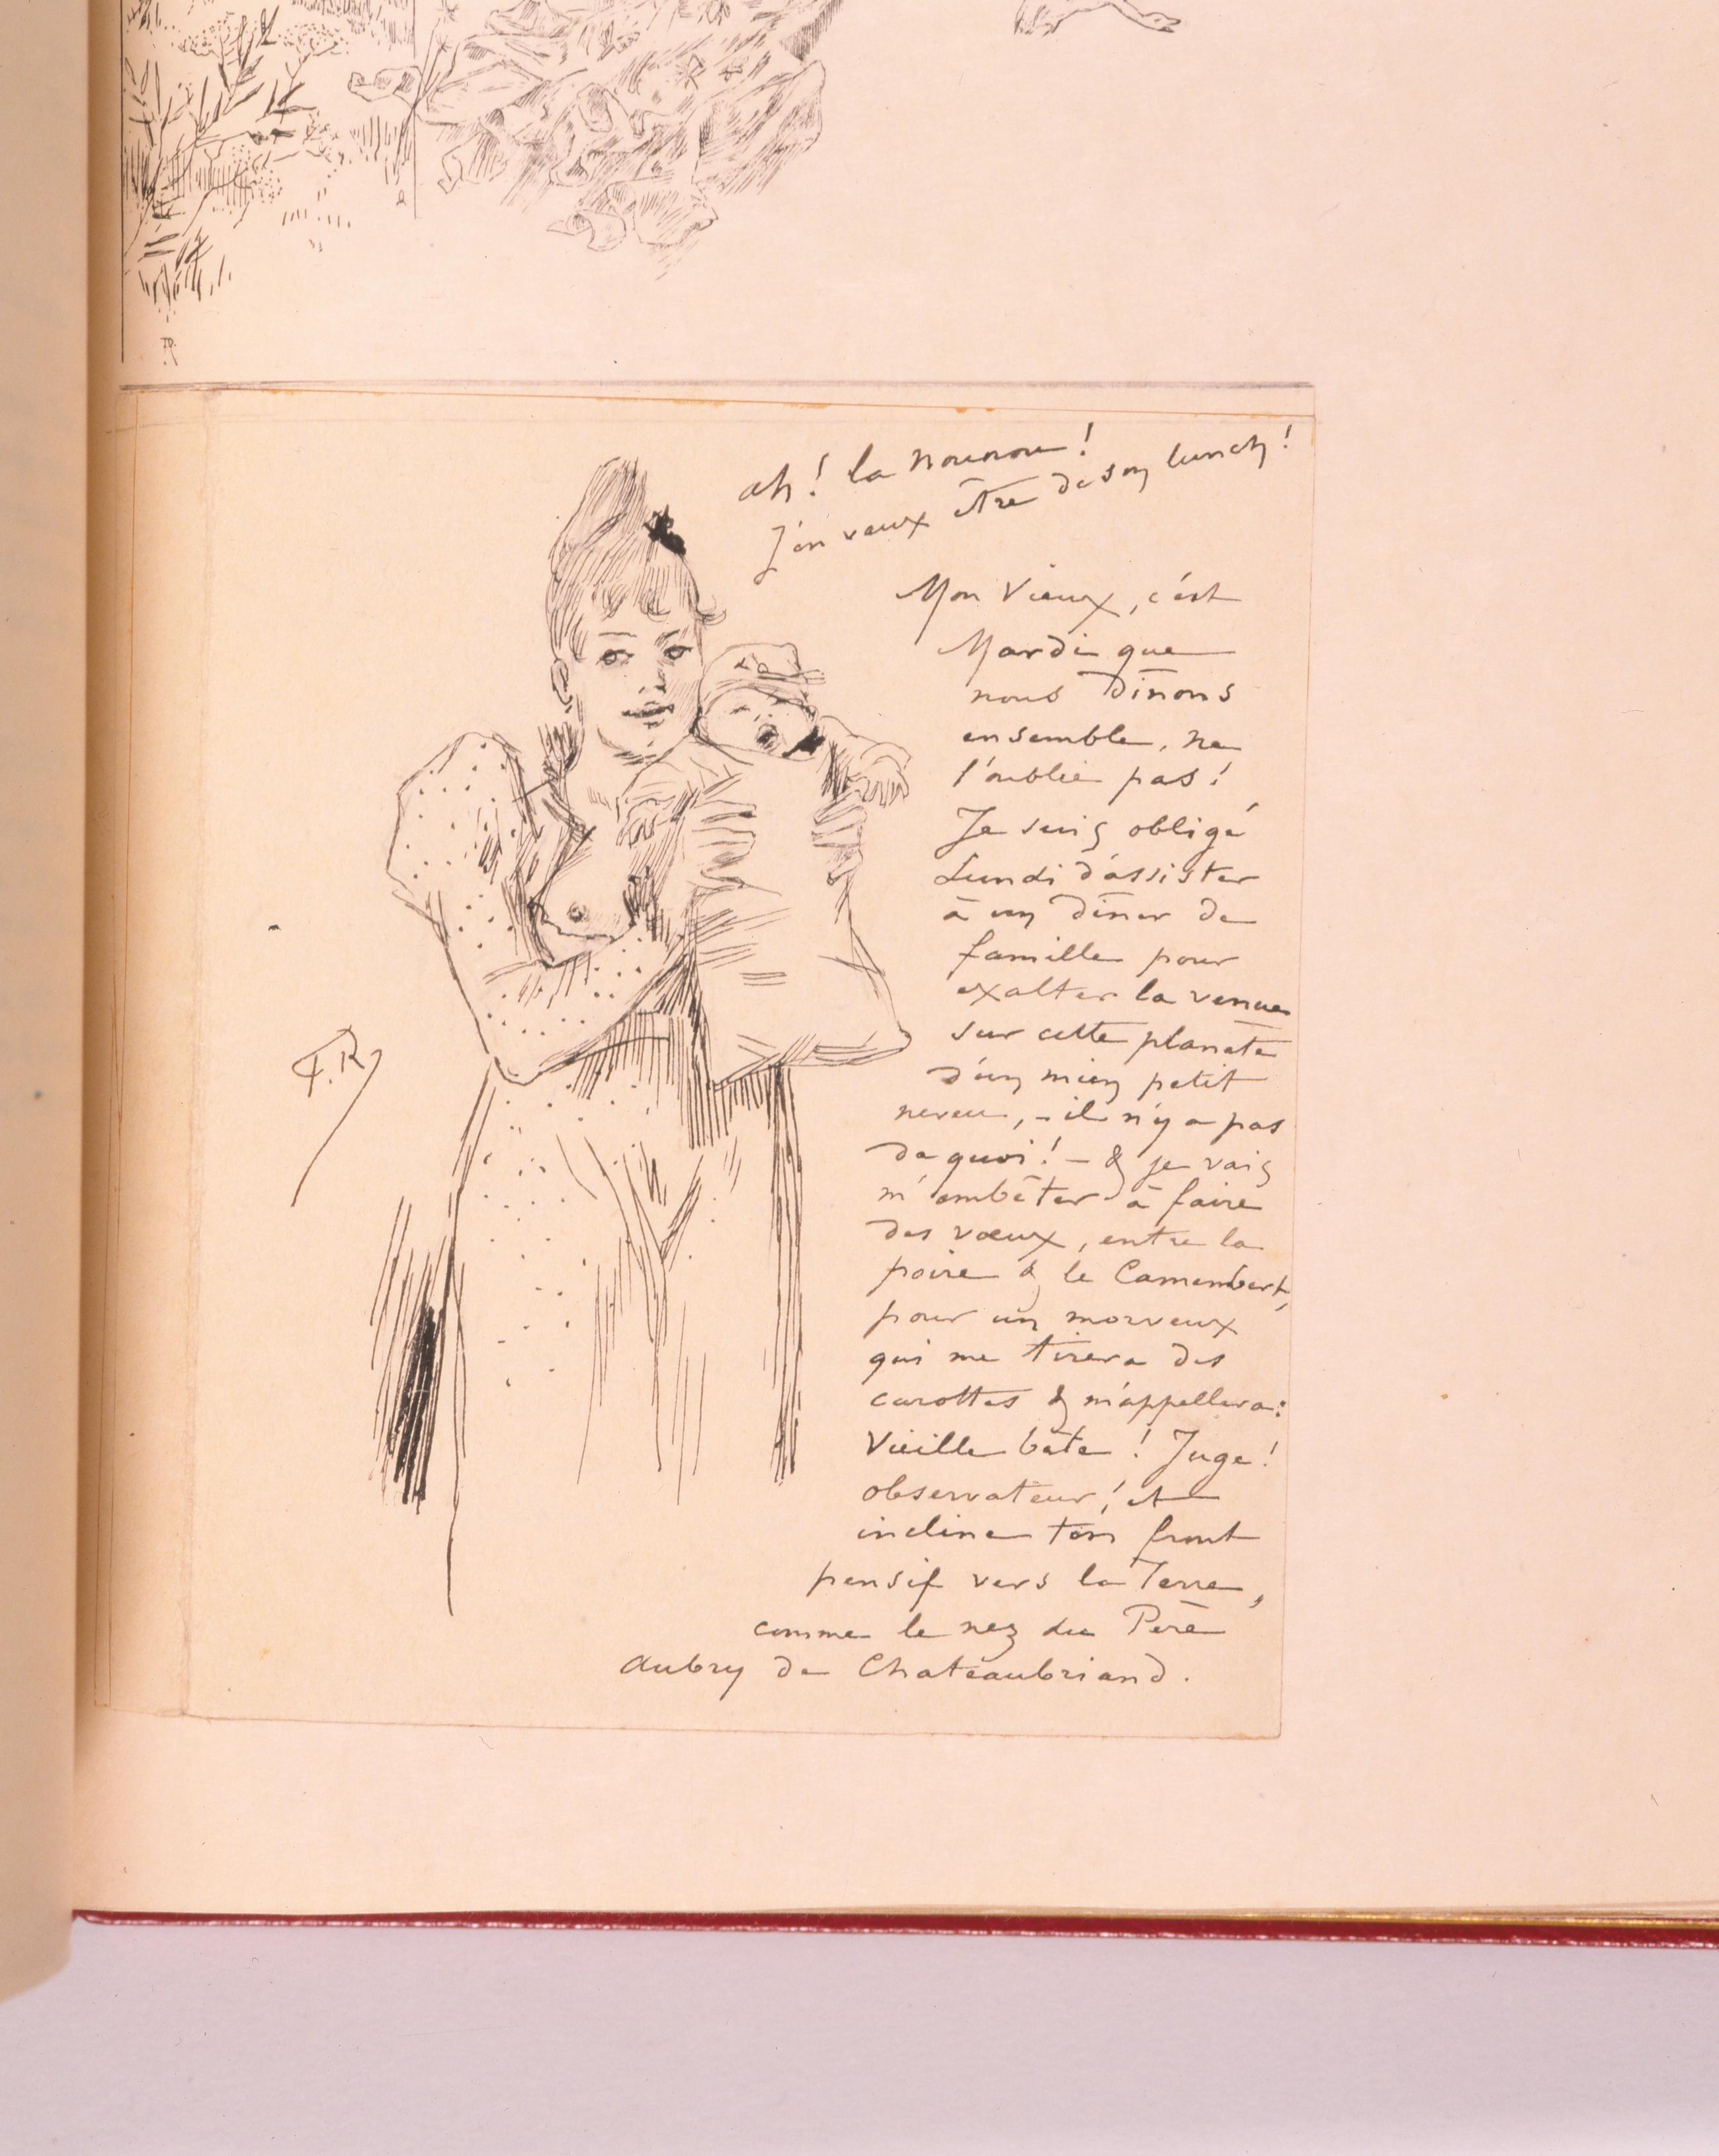 ah! la nounou!
J'en veux être de son lunch!
Mon Vieux, c'est
Mardi que
nous dînons
ensemble, ne
l'oublie pas!
Je suis obligé
Lundi d'assister
à un dîner de
famille pour
exalter la venue
sur cette planète
d'un mien petit
neveu, - il n'y a pas
de quoi! - & je vais
m'embêter à faire
des vœux, entre la
poire & le Camembert,
pour un morveux
qui me tirera des
carottes & m'appellera:
Vieille bête! Juge!
observateur! et
incline ton front
pensif vers la Terre,
comme le nez du Père
Aubry de Chateaubriand.
F.R